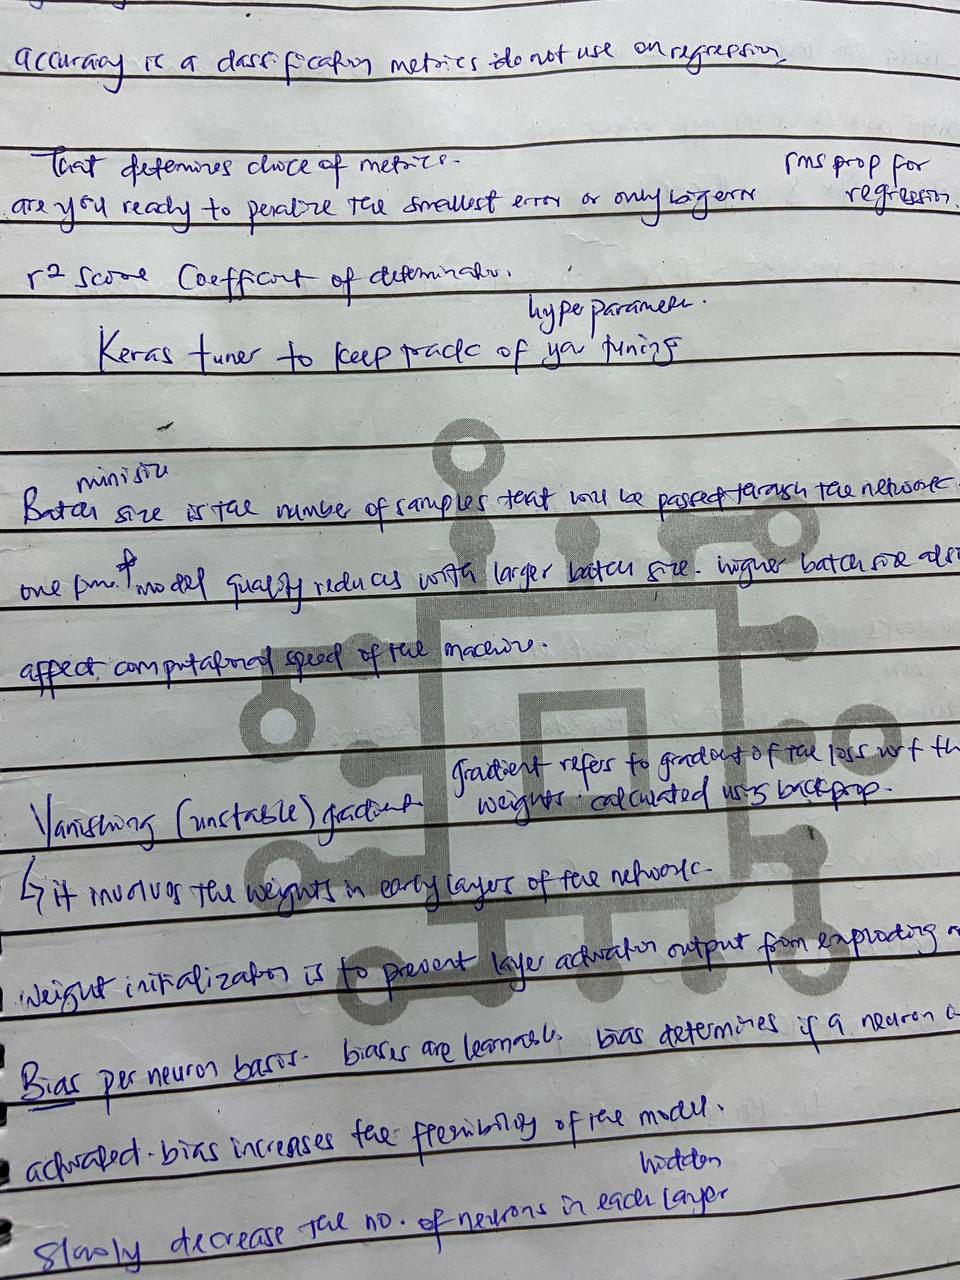 accuracy is a classification metrics do not use on regression
That determines choice of metrics.
rms prop for regression.
are you ready to penalize the smallest error or only big error
r² score Coefficient of determination.
hyperparameter.
Keras tuner to keep track of ya tuning
Batch size is the number of samples that will be passed through the network
one model quality reduces with larger batch size. higher batch size also
affect computational speed of the machine.
gradient refers to gradient of the loss wrt the
weights. calculated using backprop.
Vanishing (unstable) gradient
↳ it involves the weights in early layers of the network.
weight initialization is to prevent layer activation output from exploding
Bias per neuron basis. biases are learnable. bias determines if a neuron
activated. bias increases the flexibility of the model.
hidden
Slowly decrease the no. of neurons in each layer